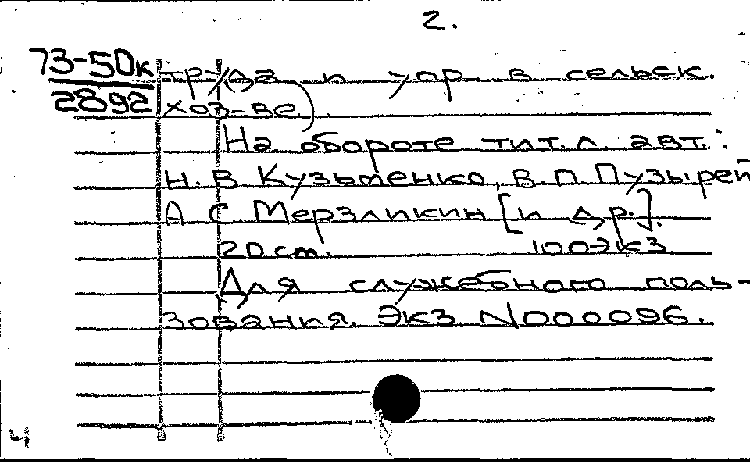 2.
73-50к
2892
труда и упр. в сельск.
хоз-ве).
На обороте тит. л. авт.:
Н. В Кузьменко, В. П. Пузырей
А С Мерзликин [и др.].
20 cm. 100экз
Для служебного поль-
зования. Экз. N000096.